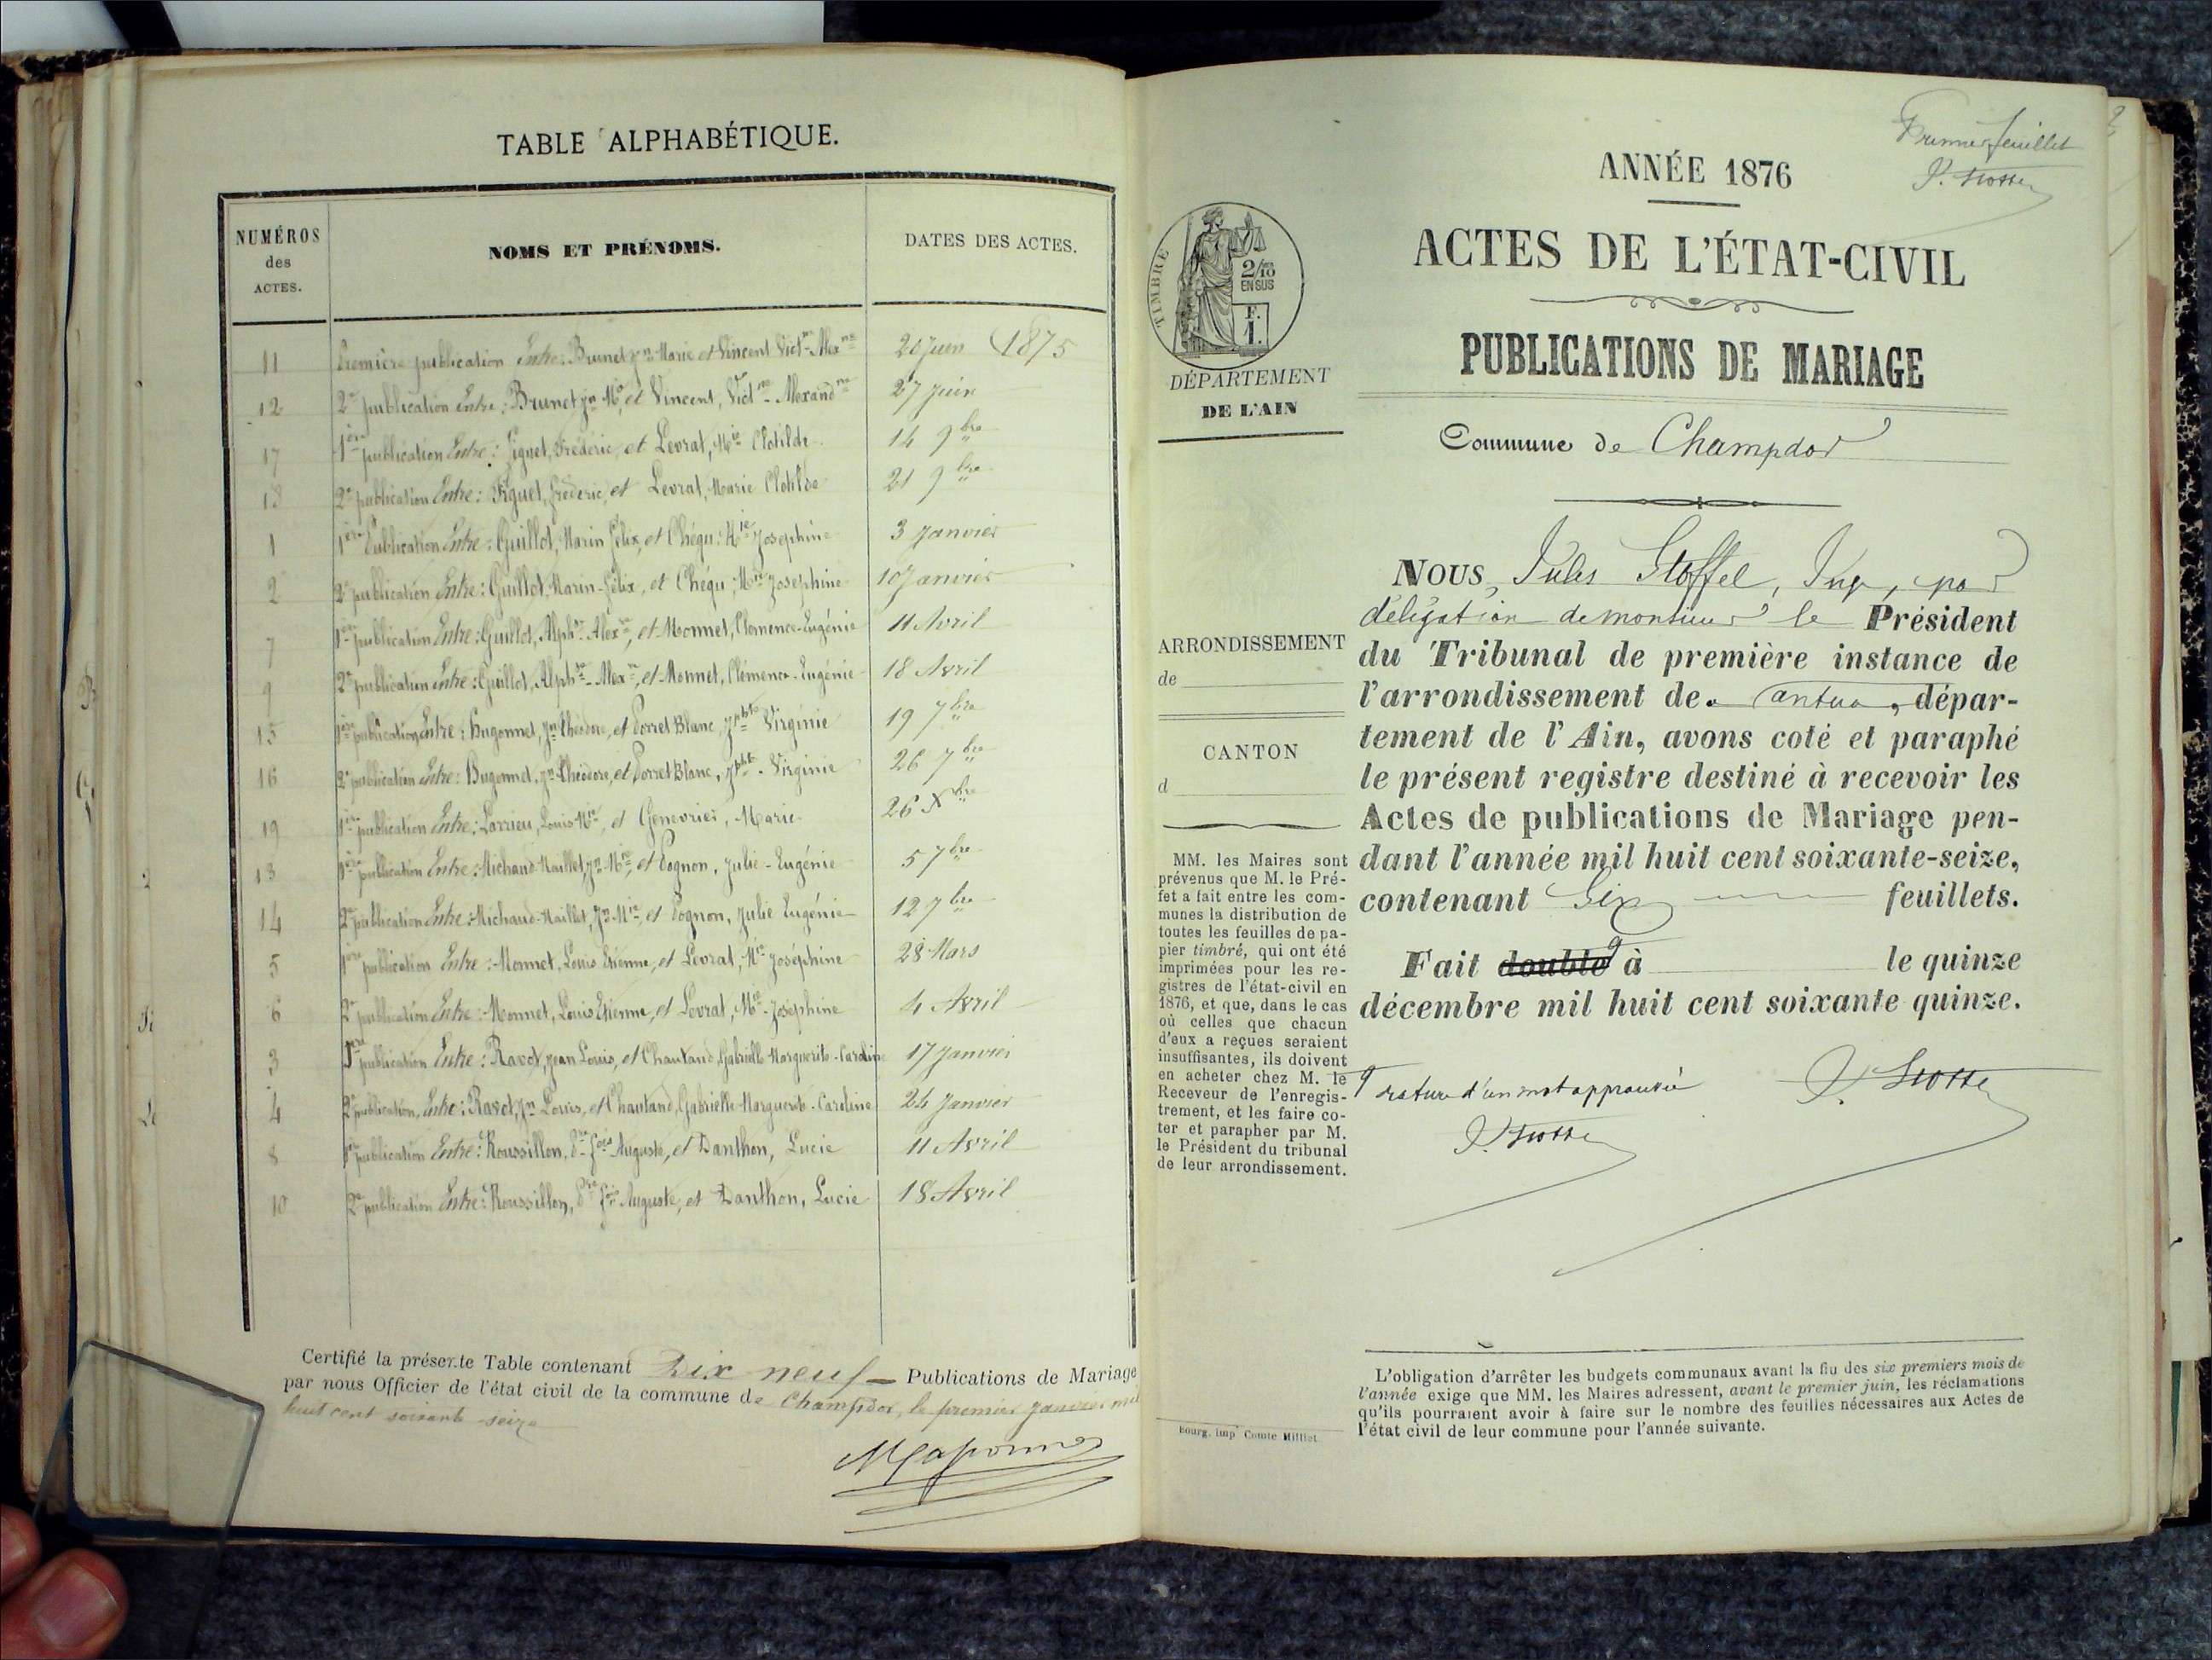 TABLE ALPHABÉTIQUE.
NUMÉROS des ACTES.
NOMS ET PRÉNOMS.
DATES DES ACTES.
11 Première publication Entre: Brunet Jn Marie et Vincent Vict.ne Alex.ne 20 Juin 1875
12 2e publication Entre: Brunet Jn Mie, et Vincent, Vict.ne Alexand.ne 27 juin
17 1ère publication Entre: Figuet, Frédéric, et Levrat, Mie Clotilde 14 9bre
18 2e publication Entre: Figuet, Frédéric, et Levrat, Marie Clotilde 21 9bre
1 1ère Publication Entre: Guillot, Marin Félix, et Chégu, Mie Joséphine 3 Janvier
2 2e publication Entre: Guillot, Marin-Félix, et Chégu, Mie Joséphine 10 Janvier
7 1ère publication Entre: Guillot, Alph.se Alex.re, et Monnet, Clémence-Eugénie 11 Avril
9 2e publication Entre: Guillot, Alph.se Alex.re, et Monnet, Clémence-Eugénie 18 Avril
15 1ère publication Entre: Hugonnet, Jn Théodore, et Perret Blanc, Jphte Virginie 19 7bre
16 2e publication Entre: Hugonnet, Jn Théodore, et Perret Blanc, Jphte Virginie 26 7bre
19 1ère publication Entre: Louis Mie, et Genevrier, Marie 26 Xbre
13 1ère publication Entre: Michaud-Maillet, Jn Mie, et Pognon, Julie-Eugénie 5 7bre
14 2e publication Entre: Michaud-Maillet, Jn Mie, et Pognon, Julie Eugénie 12 7bre
5 1ère publication Entre: Monnet, Louis Etienne, et Levrat, Mie Joséphine 28 Mars
6 2e publication Entre: Monnet, Louis Etienne, et Levrat, Mie Joséphine 4 Avril
3 1ère publication Entre: Ravot, Jean Louis, et Chantand, Gabrielle Marguerite-Caroline 17 Janvier
4 2e publication, Entre: Ravot, Jn Louis, et Chantand, Gabrielle-Marguerite-Caroline 24 Janvier
8 1ère publication Entre: Roussillon, Auguste, et Danthon, Lucie 11 Avril
10 2e publication Entre: Roussillon, Auguste, et Danthon, Lucie 18 Avril
Certifié la présente Table contenant Dix neuf Publications de Mariage
par nous Officier de l'état civil de la commune de Champdor, le premier janvier mil
huit cent soixante-seize
Premier feuillet
ANNÉE 1876
ACTES DE L'ÉTAT-CIVIL
PUBLICATIONS DE MARIAGE
Commune de Champdor
TIMBRE
2/10 EN SUS
F. 1.
DÉPARTEMENT
DE L'AIN
ARRONDISSEMENT
de
CANTON
d
MM. les Maires sont
prévenus que M. le Pré-
fet a fait entre les com-
munes la distribution de
toutes les feuilles de pa-
pier timbré, qui ont été
imprimées pour les re-
gistres de l'état-civil en
1876, et que, dans le cas
où celles que chacun
d'eux a reçues seraient
insuffisantes, ils doivent
en acheter chez M. le
Receveur de l'enregis-
trement, et les faire co-
ter et parapher par M.
le Président du tribunal
de leur arrondissement.
Bourg, imp Comte Milliet
NOUS, Jules Stoffel, Juge, par
délégation de monsieur le Président
du Tribunal de première instance de
l'arrondissement de Nantua, dépar-
tement de l'Ain, avons coté et paraphé
le présent registre destiné à recevoir les
Actes de publications de Mariage pen-
dant l'année mil huit cent soixante-seize,
contenant Six feuillets.
Fait double à le quinze
décembre mil huit cent soixante quinze.
rature d'un mot approuvée
L'obligation d'arrêter les budgets communaux avant la fin des six premiers mois de
l'année exige que MM. les Maires adressent, avant le premier juin, les réclamations
qu'ils pourraient avoir à faire sur le nombre des feuilles nécessaires aux Actes de
l'état civil de leur commune pour l'année suivante.